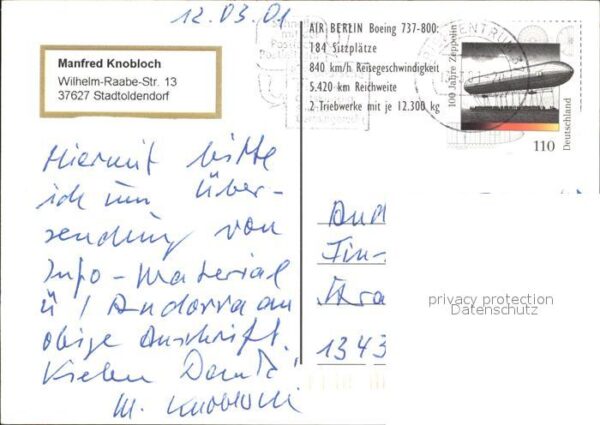 12.03.01
Manfred Knobloch
Wilhelm-Raabe-Str. 13
37627 Stadtoldendorf
Hiermit bitte
ich um Über-
sendung von
Info-Material
ü/Andorra an
obige Anschrift.
Vielen Dank!
M. Knobloch
AIR BERLIN Boeing 737-800:
184 Sitzplätze
840 km/h Reisegeschwindigkeit
5.420 km Reichweite
2 Triebwerke mit je 12.300 kg
100 Jahre Zeppelin
Deutschland
110
And
Fin-
1343
privacy protection
Datenschutz